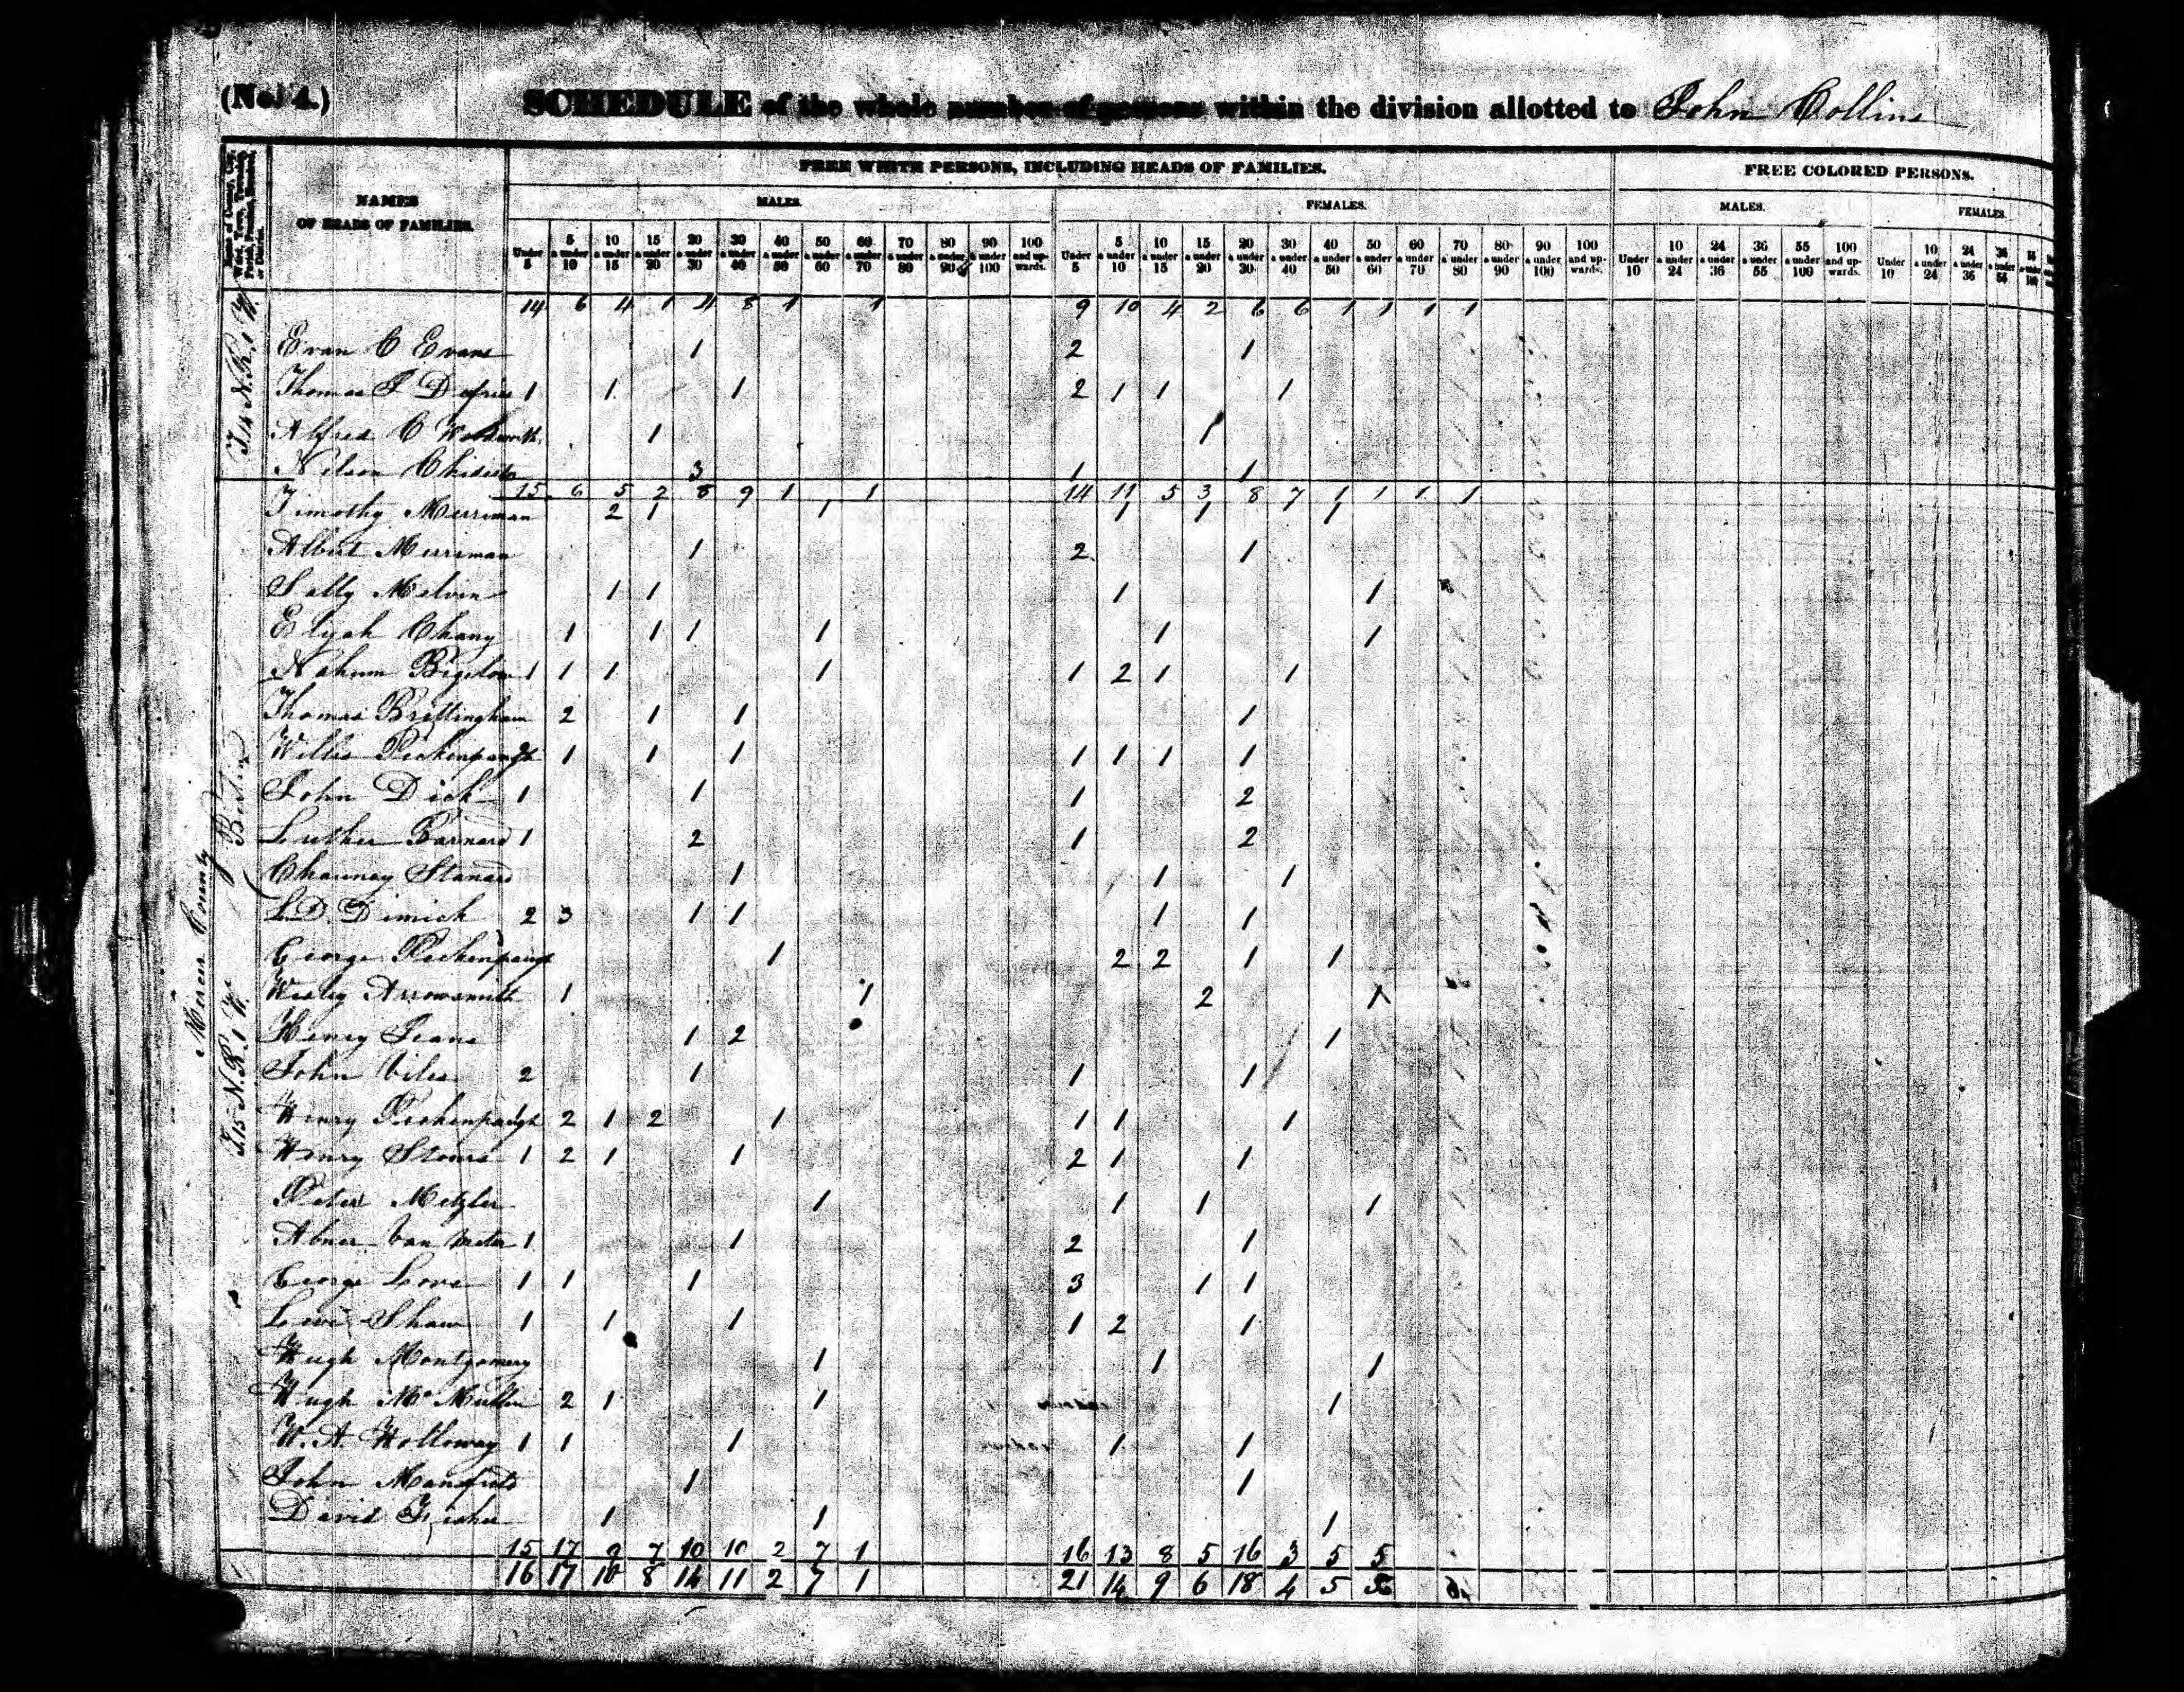 (No. 4.) SCHEDULE of the whole number of persons within the division allotted to John Collins
NAMES OF HEADS OF FAMILIES.
FREE WHITE PERSONS, INCLUDING HEADS OF FAMILIES.
FREE COLORED PERSONS.
MALES. FEMALES. MALES. FEMALES.
Under 5 5 a under 10 10 a under 15 15 a under 20 20 a under 30 30 a under 40 40 a under 50 50 a under 60 60 a under 70 70 a under 80 80 a under 90 90 a under 100 100 and upwards. Under 5 5 a under 10 10 a under 15 15 a under 20 20 a under 30 30 a under 40 40 a under 50 50 a under 60 60 a under 70 70 a under 80 80 a under 90 90 a under 100 100 and upwards. Under 10 10 a under 24 24 a under 36 36 a under 55 55 a under 100 100 and upwards. Under 10 10 a under 24 24 a under 36 36 a under 55
14 6 4 1 4 8 1 1 9 10 4 2 6 6 1 1 1 1
Evan C Evans 1 2 1
Thomas J 1 1 1 2 1 1 1
Alfred C 1 1
Nelson 3 1 1
15 6 5 2 8 9 1 1 14 11 5 3 8 7 1 1 1 1
Timothy Merriman 2 1 1 1 1 1
Albert Merriman 1 2 1
Sally Melvin 1 1 1 1
Elijah Chany 1 1 1 1 1 1
Nahum Bigelow 1 1 1 1 1 2 1 1
Thomas Brittingham 2 1 1 1
Willis Peckenpaugh 2 1 1 1 1 1 1 1
John Dick 1 1 1 2
Luther Barnard 1 2 1 2
Chauncy Stanard 1 1 1
L. D. Dimick 2 3 1 1 1 1
George Peckenpaugh 1 2 2 1 1
Wesley Arrowsmith 1 1 2 1
Henry 1 2 1
John Viles 2 1 1 1
Henry Peckenpaugh 2 1 2 1 1 1 1
Henry 1 2 1 1 2 1 1
Peter Metzler 1 1 1 1
Abner Van Meter 1 1 2 1
George Love 1 1 1 3 1 1
Levi Shaw 1 1 1 1 2 1
Hugh Montgomery 1 1 1
Hugh McMullin 2 1 1 1
W. A. Holloway 1 1 1 1 1
John 1 1
David Fisher 1 1 1
15 17 9 7 10 10 2 7 1 16 13 8 5 16 3 5 5
16 17 10 8 14 11 2 7 1 21 14 9 6 18 4 5 5
T 14 N. R. 1 W.
Mercer County
T 15 N. R. 1 W.